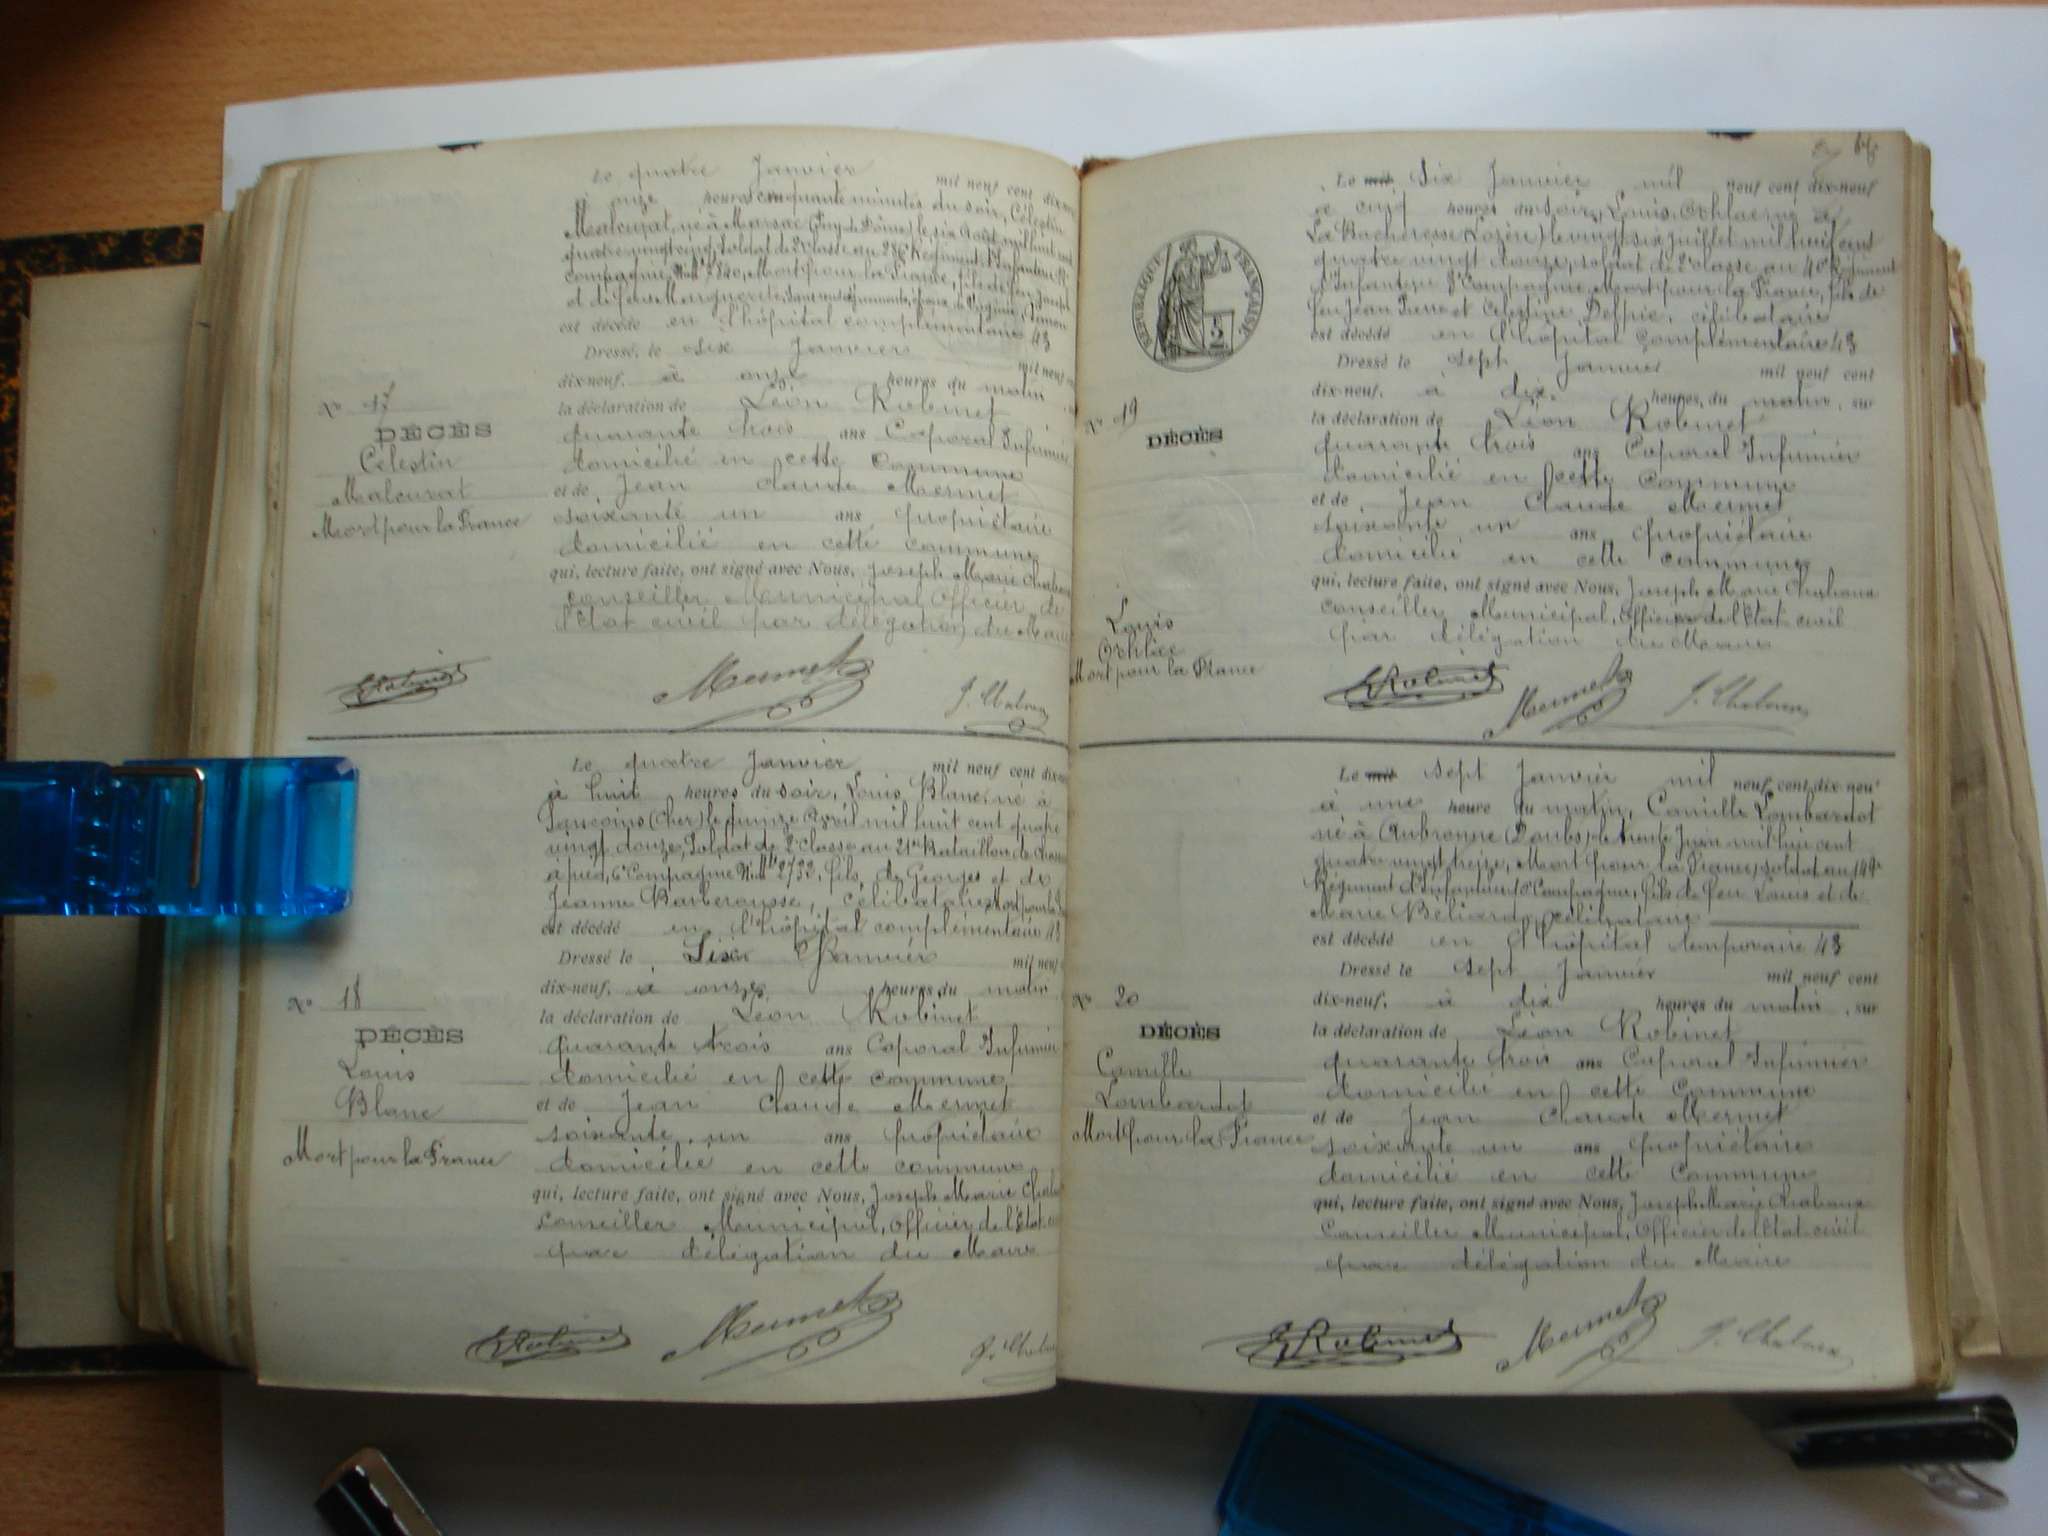 Le quatre Janvier mil neuf cent dix-neuf
à onze heures cinquante minutes du soir, Célestin
Malcurat, né à Marsac (Puy de Dôme) le six Août mil huit cent
quatre vingt Soldat de 2e classe au Régiment d'Infanterie
compagnie, Mort pour la France, fils de feu Joseph
et de feue Marguerite époux de Virginie
est décédé en l'hôpital complémentaire 43
Dressé, le six Janvier mil neuf cent
dix-neuf, à onze heures du matin
la déclaration de Léon Robinet
quarante trois ans Caporal Infirmier
domicilié en cette commune
et de Jean Claude Mermet
soixante un ans, propriétaire
domicilié en cette commune
qui, lecture faite, ont signé avec Nous, Joseph Marie
conseiller Municipal Officier de
l'Etat civil par délégation du Maire
No 17
DÉCÈS
Célestin
Malcurat
Mort pour la France
Robinet Mermet
Le quatre Janvier mil neuf cent dix-neuf
à huit heures du soir, Louis Blanc, né à
Sancoins (Cher) le quinze Avril mil huit cent quatre
vingt douze, Soldat de 2e classe au 21me Bataillon de
à pied, 6e Compagnie Nle Mll 2732, fils de Georges et de
Jeanne Barberousse, célibataire, Mort pour la
est décédé en l'hôpital complémentaire 43
Dressé le Six Janvier mil neuf
dix-neuf, à onze heures du matin
la déclaration de Léon Robinet
quarante trois ans Caporal Infirmier
domicilié en cette commune
et de Jean Claude Mermet
soixante un ans propriétaire
domicilié en cette commune
qui, lecture faite, ont signé avec Nous, Joseph Marie
conseiller Municipal, Officier de l'Etat
par délégation du Maire
No 18
DÉCÈS
Louis
Blanc
Mort pour la France
Robinet Mermet
Le mil Six Janvier mil neuf cent dix-neuf
à cinq heures du soir, Louis Othlac né à
La Bacheresse (Lozère) le vingt six juillet mil huit cent
quatre vingt douze, soldat de 2e classe au 40e Régiment
d'Infanterie Compagnie Mort pour la France, fils de
feu Jean Pierre et Célestine Delpic, célibataire
est décédé en l'hôpital complémentaire 43
Dressé le sept Janvier mil neuf cent
dix-neuf, à dix heures, du matin, sur
la déclaration de Léon Robinet
quarante trois ans Caporal Infirmier
domicilié en cette commune
et de Jean Claude Mermet
soixante un ans, propriétaire
domicilié en cette commune
qui, lecture faite, ont signé avec Nous, Joseph Marie
conseiller Municipal, Officier de l'Etat civil
par délégation du Maire
RÉPUBLIQUE FRANÇAISE.
No 19
DÉCÈS
Louis
Othlac
Mort pour la France
Robinet Mermet
Le mil sept Janvier mil neuf cent dix-neuf
à une heure du matin, Camille Lombardot
né à Aubronne (Doubs) le trente Juin mil huit cent
quatre vingt treize, Mort pour la France, soldat au 144e
Régiment d'Infanterie Compagnie, fils de feu Louis et de
Marie Béliard, célibataire
est décédé en l'hôpital temporaire 43
Dressé le sept Janvier mil neuf cent
dix-neuf, à dix heures du matin, sur
la déclaration de Léon Robinet
quarante trois ans Caporal Infirmier
domicilié en cette Commune
et de Jean Claude Mermet
soixante un ans propriétaire
domicilié en cette Commune
qui, lecture faite, ont signé avec Nous, Joseph Marie
Conseiller Municipal, Officier de l'Etat civil
par délégation du Maire
No 20
DÉCÈS
Camille
Lombardot
Mort pour la France
Robinet Mermet